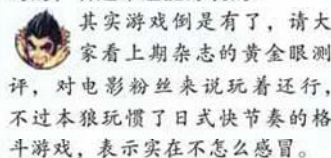 其实游戏倒是有了，请大
家看上期杂志的黄金眼测
评，对电影粉丝来说玩着还行，
不过本狼玩惯了日式快节奏的格
斗游戏，表示实在不怎么感冒。